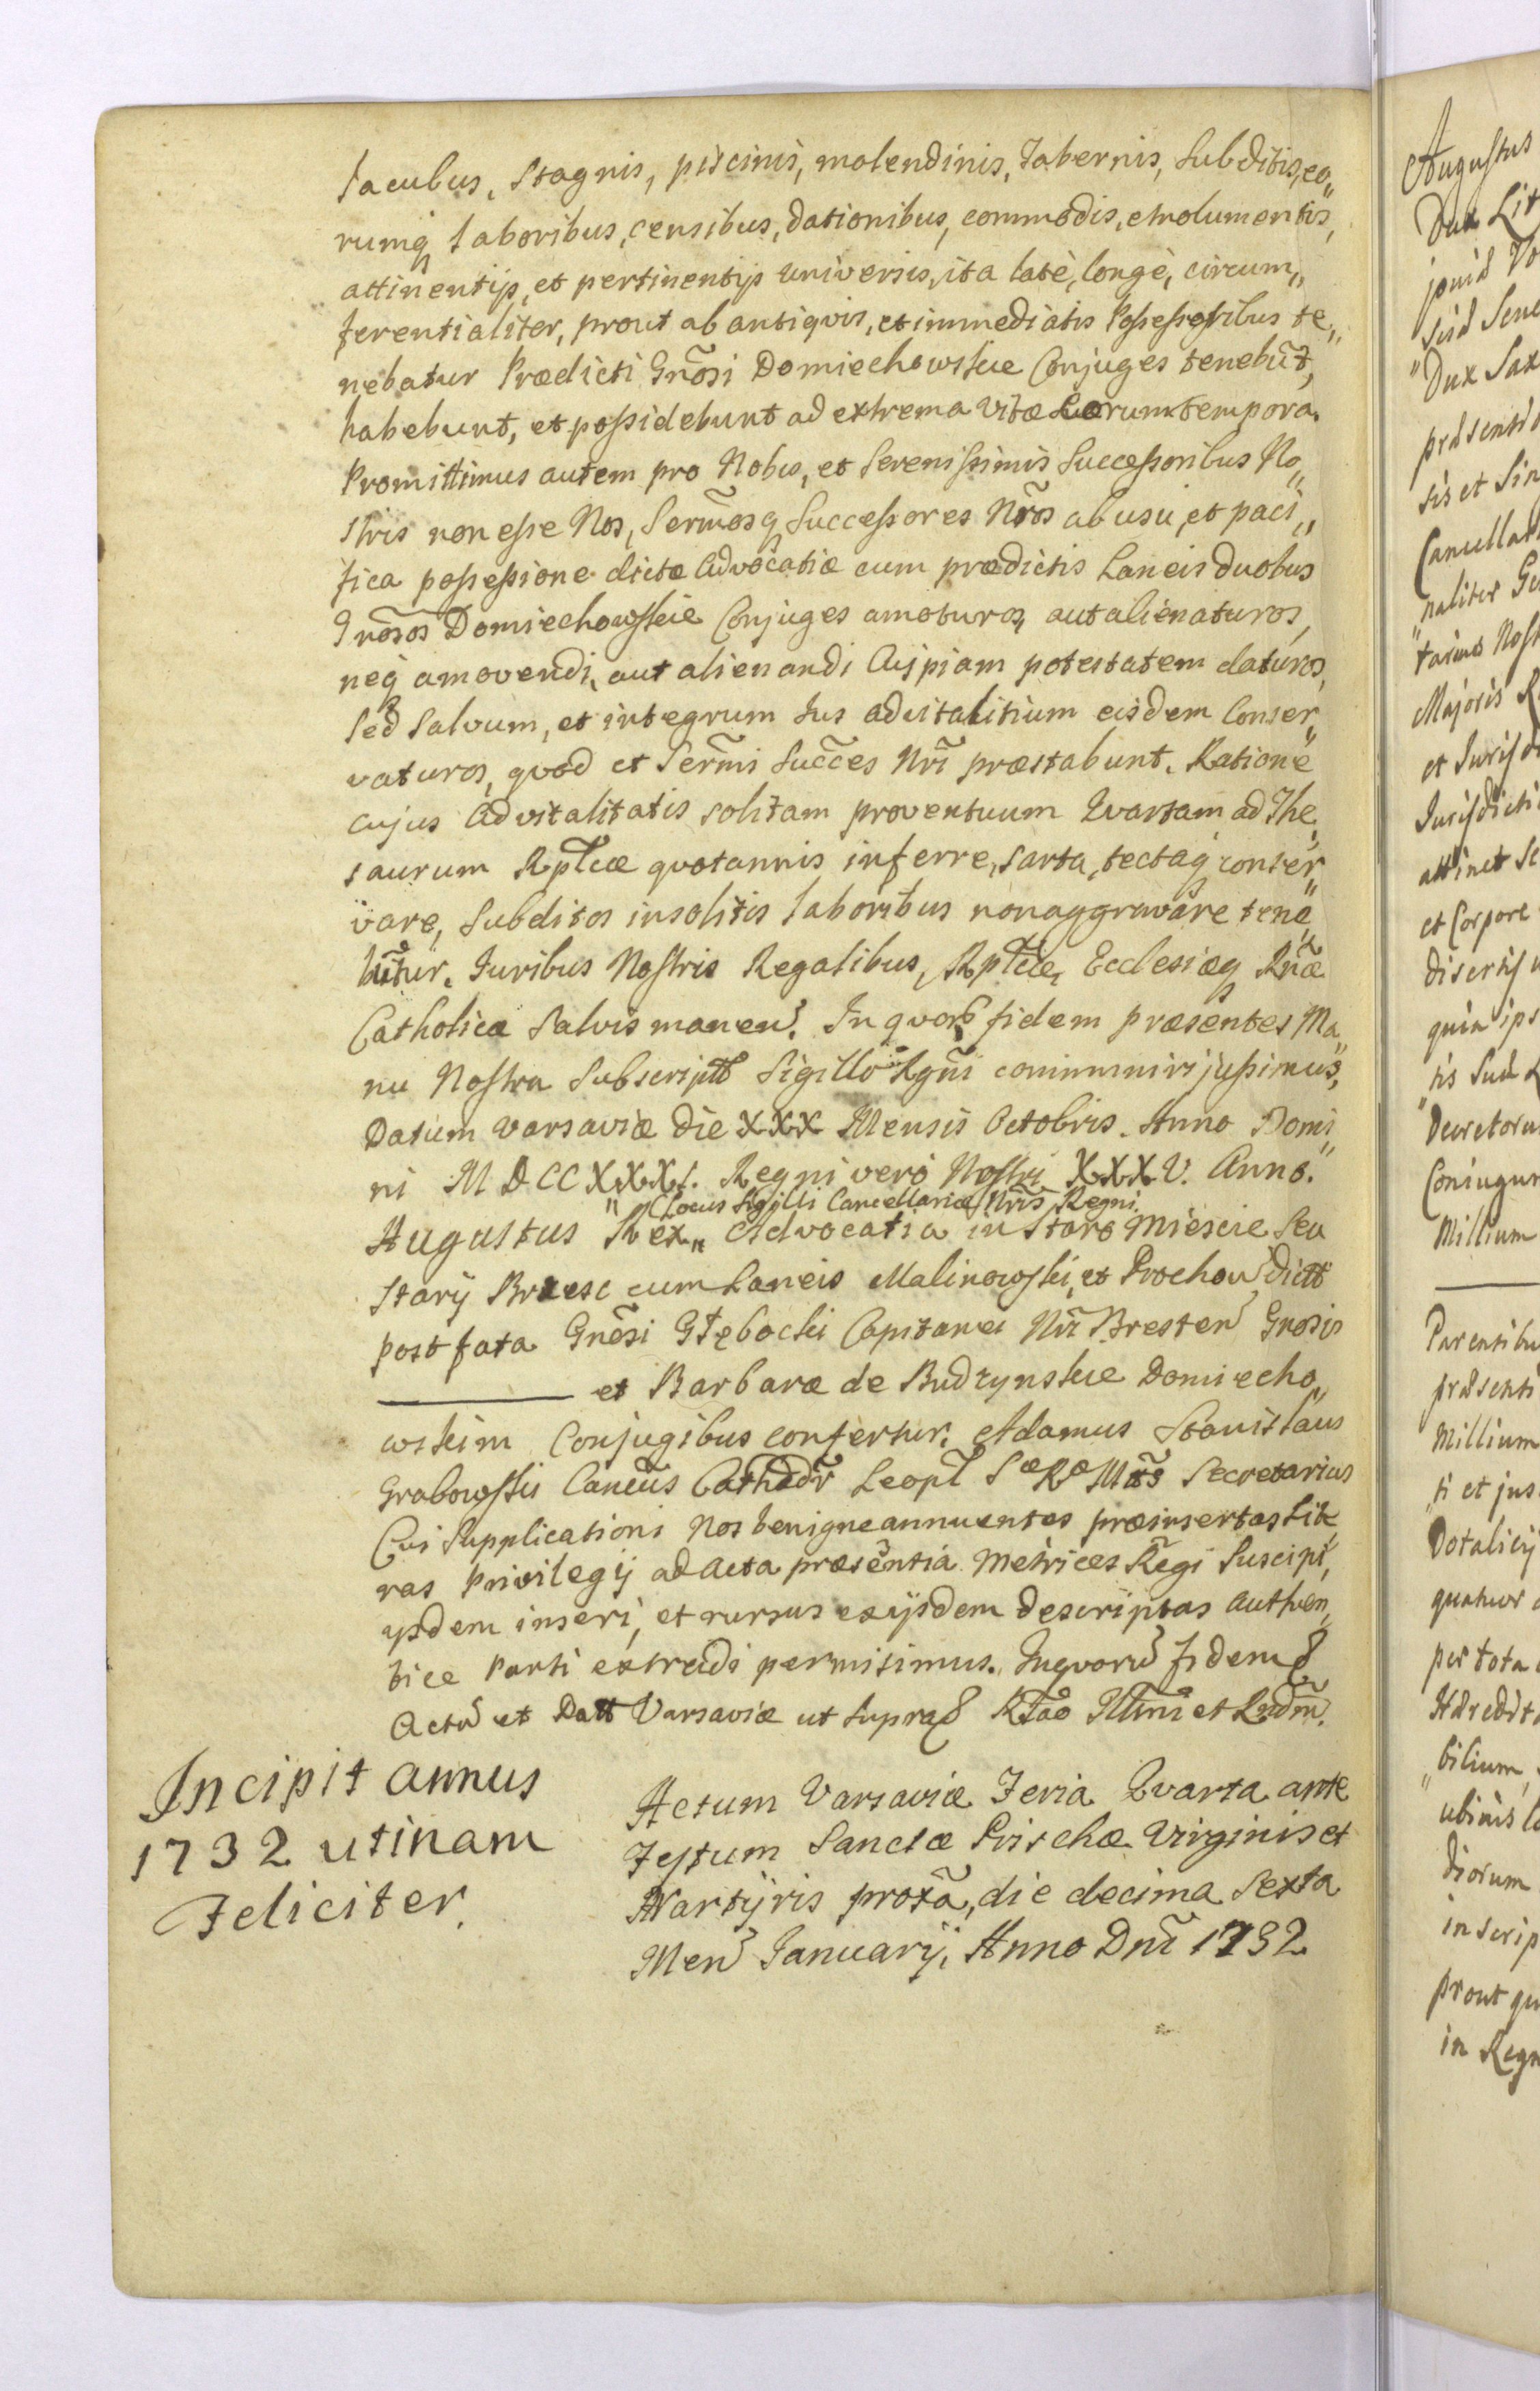 lacubus, Stagnis, piscinis, molendinis, Tabernis, Subditis, eo„
rumq laboribus, censibus, dationibus, commodis, emolumentis,
attinentijs, et pertinentijs universis, ita latè, longè, circum„
ferentialiter, prout ab antiqvis, et immediatis Possessoribus te„
nebatur Prædicti Gnõsi Domiechowscie Conjuges tenebũt,
habebunt, et possidebunt ad extrema vitæ Eorum tempora.
Promittimus autem pro Nobis, et Serenissimis Successoribus No„
stris non esse Nos, Sermõsq Successores Nrõs ab usu, et paci„
fica possessione dictæ Advocatiæ cum prædictis Laneis duobus
Gnõsos Domiechowskie Conjuges amoturos, aut alienaturos,
neq amovendi, aut alienandi Cujpiam potestatem daturos,
Sed Salvum, et integrum Jus advitalitium eisdem Conser„
vaturos, qvod et Sermĩ Succẽs Nrĩ præstabunt. Ratione
cujus Advitalitatis solitam proventuum Qvartam ad The„
saurum Rptcæ qvotannis inferre, sarta, tectaq conser„
vare, Subditos insolitis laboribus non aggravare tene„
bũtur. Juribus Nostris Regalibus, Rptcæ, Ecclesiæq Rñæ
Catholicæ Salvis manen. In qvor fidem præsentes Ma„
nu Nostra Subscript Sigillo Rgñi communiri jussimus,
Datum Varsaviæ die XXX Mensis Octobris. Anno Domi„
ni MDCCXXXI. Regni verò Nostri XXXV. Anno.
(Locus Sigilli Cancellariæ Mrĩs Regni.
Augustus Rex„ Advocatia in Staro Miescie Seu
Stary Brzesc cum Laneis Malinowski, et Prochow dict
post fata Gnẽsi Głębocki Capitanei Nrĩ Bresten Gnosis
——— et Barbaræ de Budzynskie Domiecho„
wskim Conjugibus confertur. Adamus Stanislaus
Grabowski Cancũs Cathedr Leopl Sæ Ræ Mtis Secretarius
Cui Supplicationi Nos benigne annuentes præinsertas Litte„
ras Privilegij ad Acta præsentia Metrices Regĩ Suscipi,
ijsdem inseri, et rursus ex ijsdem descriptas authen„
tice Parti extradi permisimus. In qvoru fidem &
Actu et Datt Varsaviæ ut supra & Rtão Illmĩ et Rndm̃.
Incipit annus
1732 utinam
Feliciter.
Actum Varsaviæ Feria Qvarta ante
Festum Sanctæ Prischæ Virginis et
Martyris proxã, die decima Sexta
Men Januarij, Anno Dnĩ 1732
Augustus
Dux Lit
Dux Sax
sis et Sin
Cancellar
Majoris R
attinet
et Corpore
quia ips
Millium
Parentibu
Millium
ti et jus
Dotalicij
per tota
bilium,
diorum
inscrip
prout qu
in Regn